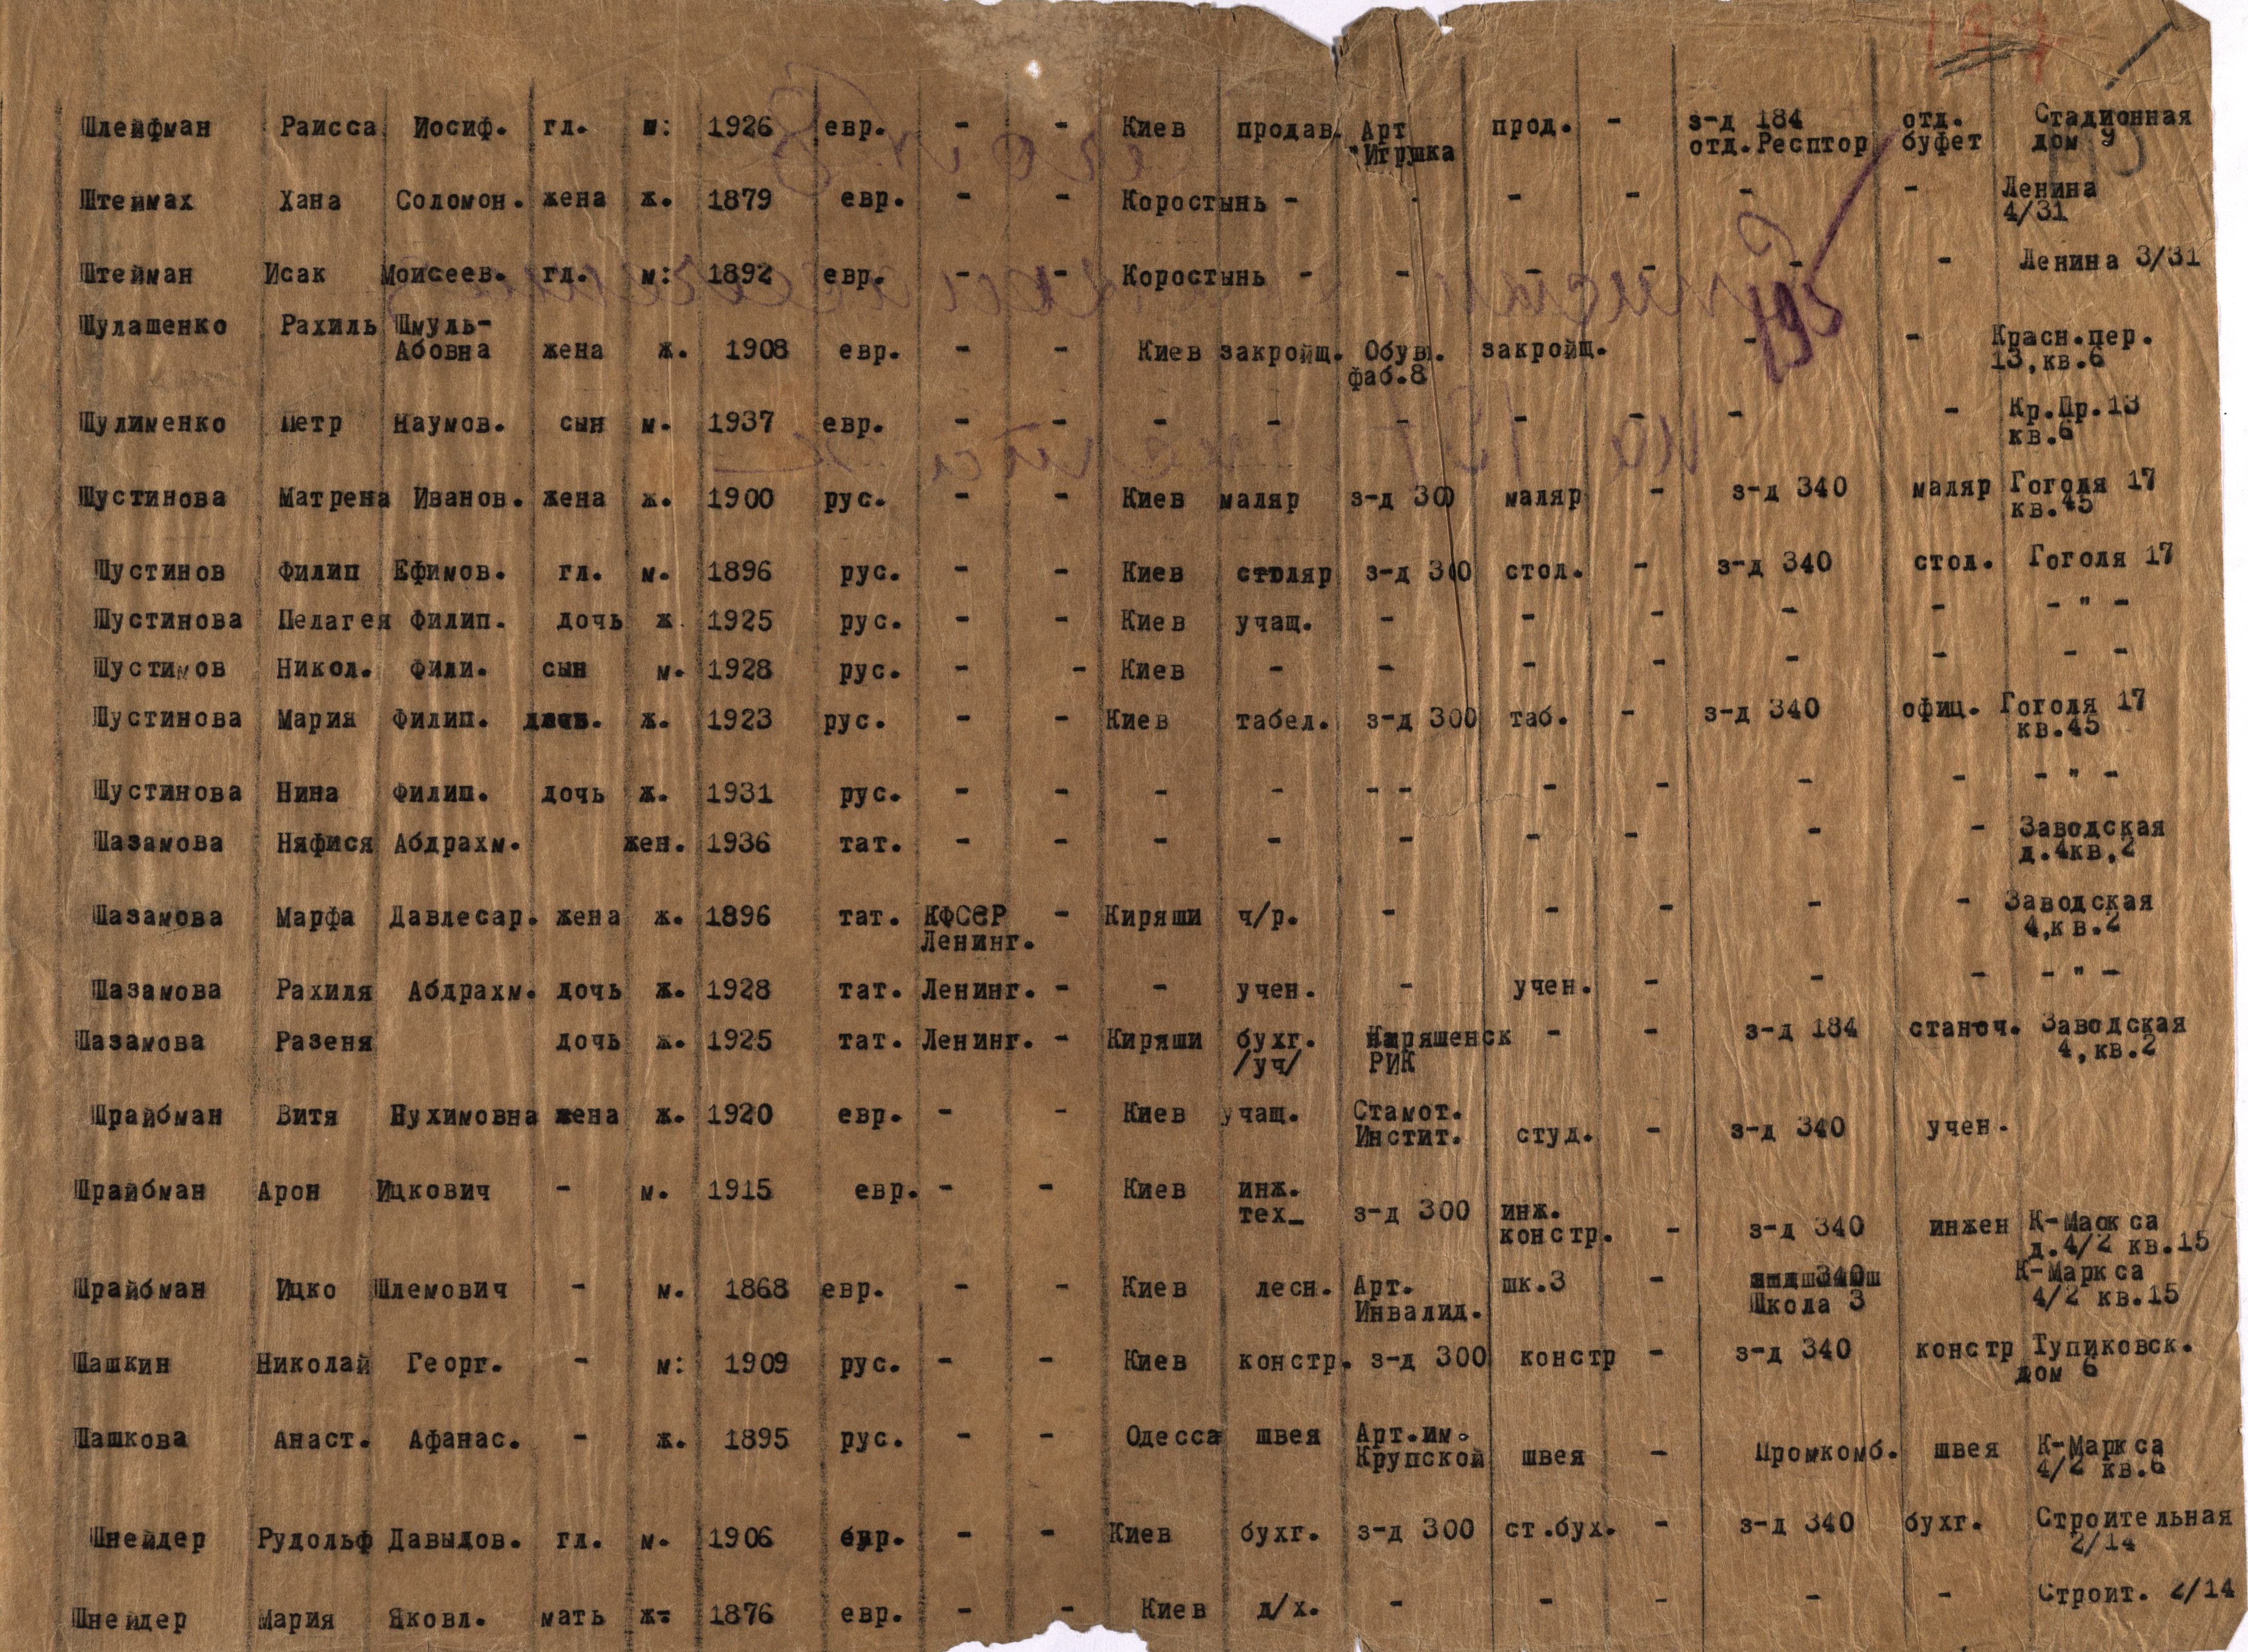 Шлейфман Раисса Иосиф. гл. м: 1926 евр. - - Киев продав. Арт прод. - з-д 184 отд. Стадионная
"Игрушка отд.Респтор буфет дом 9
Штеймах Хана Соломон. жена ж. 1879 евр. - - Коростынь - - - - - - Ленина
4/31
Штейман Исак Моисеев. гл. м: 1892 евр. - - Коростынь - - - - - - Ленина 3/31
Шулашенко Рахиль Шмуль-
Абовна жена ж. 1908 евр. - - Киев закройщ. Обув. закройщ. - - Красн.пер.
фаб.8 13,кв.6
Шулименко Петр Наумов. сын м. 1937 евр. - - - - - - - - - Кр.Пр.13
кв.6
Шустинова Матрена Иванов. жена ж. 1900 рус. - - Киев маляр з-д 300 маляр - з-д 340 маляр Гоголя 17
кв.45
Шустинов Филип Ефимов. гл. м. 1896 рус. - - Киев столяр з-д 300 стол. - з-д 340 стол. Гоголя 17
Шустинова Пелагея Филип. дочь ж. 1925 рус. - - Киев учащ. - - - - - - " -
Шустимов Никол. Фили. сын м. 1928 рус. - - Киев - - - - - - - -
Шустинова Мария Филип. дочь. ж. 1923 рус. - - Киев табел. з-д 300 таб. - з-д 340 офиц. Гоголя 17
кв.45
Шустинова Нина Филип. дочь ж. 1931 рус. - - - - - - - - - - - " -
Шазамова Няфися Абдрахм. жен. 1936 тат. - - - - - - - - - Заводская
д.4кв,2
Шазамова Марфа Давлесар. жена ж. 1896 тат. КФССР - Киряши ч/р. - - - - - Заводская
Ленинг. 4,кв.2
Шазамова Рахиля Абдрахм. дочь ж. 1928 тат. Ленинг. - - учен. - учен. - - - - " -
Шазамова Разеня дочь ж. 1925 тат. Ленинг. - Киряши бухг. Киряшенск - - з-д 184 станоч. Заводская
/уч/ РИК 4,кв.2
Шрайбман Витя Нухимовна жена ж. 1920 евр. - - Киев учащ. Стамот.
Инстит. студ. - з-д 340 учен.
Шрайбман Арон Ицкович - м. 1915 евр. - - Киев инж.
тех_ з-д 300 инж. - з-д 340 инжен К-Маокса
констр. д.4/2 кв.15
Шрайбман Ицко Шлемович - м. 1868 евр. - - Киев лесн. Арт. шк.3 - К-Маркса
Инвалид. Школа 3 4/2 кв.15
Шашкин Николай Георг. - м: 1909 рус. - - Киев констр. з-д 300 констр - з-д 340 констр Тупиковск.
дом 6
Шашкова Анаст. Афанас. - ж. 1895 рус. - - Одесса швея Арт.им. швея - Промкомб. швея К-Маркса
Крупской 4/2 кв.6
Шнейдер Рудольф Давыдов. гл. м. 1906 евр. - - Киев бухг. з-д 300 ст.бух. - з-д 340 бухг. Строительная
2/14
Шнейдер Мария Яковл. мать ж- 1876 евр. - - Киев д/х. - - - - - Строит. 2/14
195